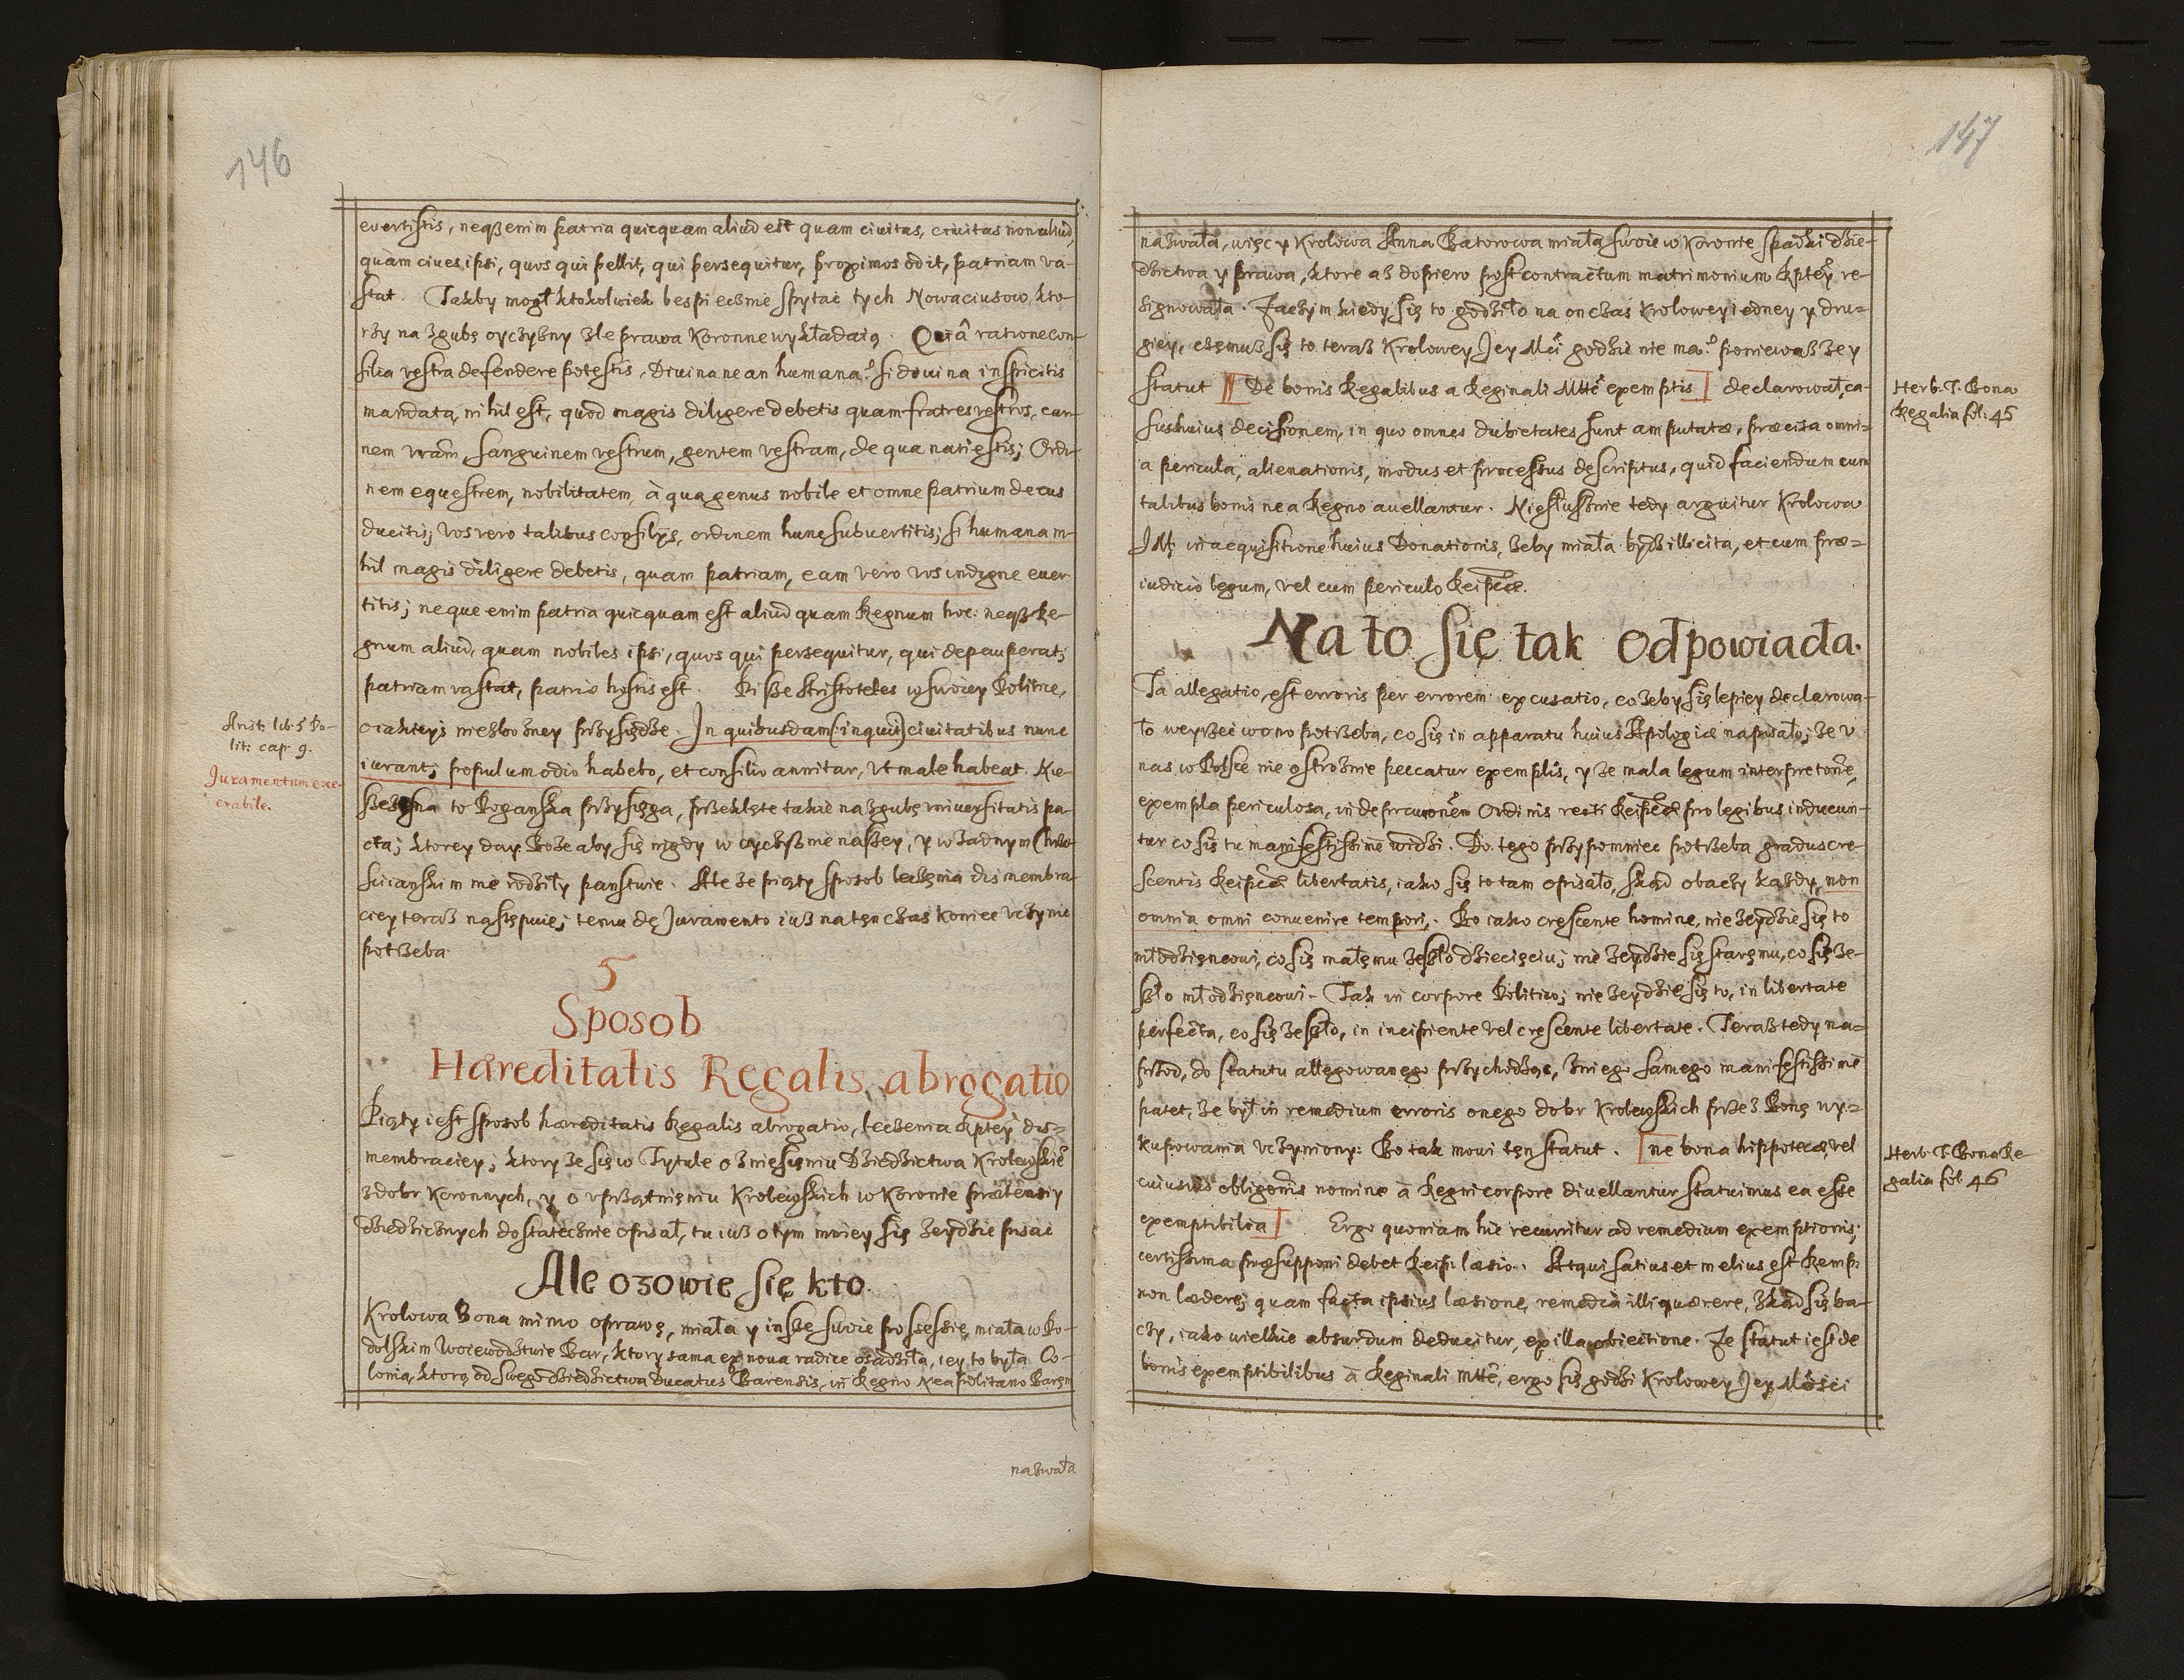 146
evertistis, neqз enim patria quicquam aliud est quam civitas, civitas non aliud,
quàm cives ipsi, quos qui pellit, qui persequitur, proximos odit, patriam va-
stat. Takby mogł ktokolwiek bespiecznie spytać tych Nowaciusow, kto-
rzy na zgubę oyczyzny zle prawa Koronne wykładaią. Quâ ratione con-
silia vestra defendere potestis, Divina ne an humana? si divina inspicitis
mandata, nihil est, quod magis diligere debetis quam fratres vestros, car-
nem vram, sanguinem vestrum, gentem vestram, de qua nati estis; Ordi-
nem equestrem, nobilitatem, à qua genus nobile et omne patrium decus
ducitis; vos vero talibus consilijs, ordinem hunc subvertitis; si humana ni-
hil magis diligere debetis, quam patriam, eam vero vos indigne ever
titis; neque enim patria quicquam est aliud quam Regnum hoc: neqз Re-
gnum aliud, quam nobiles ipsi, quos qui persequitur, qui depauperat;
patriam vastat, patriæ hostis est. Pisze Aristoteles w swoiey Politice,
o iakieyś niezbozney przysiędze. In quibusdam (inquit) civitatibus nunc
iurant; populum odio habebo, et consilio annitar, ut male habeat. Nie-
to Poganska przysięga, przeklęte takie na zgubę universitatis pa-
cta; ktorey day Boze aby się nigdy w oyczyznie naszey, y w zadnym Chrze-
scianskim nie rodziły panstwie. Ale ze piąty sposob leczenia dismembra-
ciey teraz następuie; temu de Juramento iuz na tęnczas koniec uczynić
potrzeba.
Arist: lib: 5 Po-
lit: cap: 9.
Juramentum exe-
crabile.
5
Sposob
Hæreditatis Regalis abrogatio
Piąty iest sposob hæreditatis Regalis abrogatio, leczenia Rptey dis-
membraciey; ktory ze się w Tytule o zniesięniu Dziedzictwa Krolewskie
z dobr Koronnych, y o uprzątnięniu Krolewskich w Koronie prætensiy
dziedzicznych dostatecznie opisał, tu iuz o tym mniey się zeydzie pisać
Ale ozowie się kto.
Krolowa Bona mimo oprawę, miała y insze swoie possessie, miała w Po-
dolskim Woiewodztwie Bar, ktory sama ex nova radice osadziła, iey to była Co-
lonia, ktorą od swego dziedzictwa Ducatus Barensis, in Regno Neapolitano Barem
nazwała
147
nazwała, więc y Krolowa Anna Batorowa miała swoie w Koronie spadki dzie-
dzictwa y prawa, ktore az dopiero post contractum matrimonium Rptey re-
signowała. Zaczym kiedy się to godziło na on czas Krolowey iedney y dru-
giey, częmuz się to teraz Krolowey Jey Mći godzić nie ma? poniewasz zey
statut De bonis Regalibus a Reginali Mtte exemptis declarował, ca-
sus huius decisionem, in quo omnes dubietates sunt amputatæ, præcisa omni-
a pericula, alienationis, modus et processus descripitus, quid faciendum cum
talibus bonis ne a Regno avellantur. Niesłusznie tedy arguitur Krolowa
JM in acquisitione huius Donationis, zeby miała bydź illicita, et cum præ-
iudicio legum, vel cum periculo Reipcæ.
Herb. T. Bona
Regalia fol: 45
Na to się tak odpowiada.
Ta allegatio, est erroris per errorem excusatio, co zeby się lepiey declarowa-
ło weyrzeć w ono potrzeba, co się in apparatu huius Apologiæ napisało; ze u
nas w Polsce nie ostroznie peccatur exemplis, y ze mala legum interpretone,
exempla periculosa, in Ordinis recti Reipcæ pro legibus inducun-
tur co się tu manifestissime widzi. Do tego przypomniec potrzeba gradus cre-
scentis Reipcæ libertatis, iako się to tam opisało, skąd obaczy kazdy, non
omnia omni convenire tempori. Bo iako crescente homine, nie zeydzie się to
młodzięncowi, co się małęmu zeszło dziecięciu; nie zeydzie się staręmu, co się ze-
szło młodzięncowi. Tak in corpore Politico; nie zeydzie się to, in libertate
perfecta, co się zeszło, in incipiente vel crescente libertate. Teraz tedy na-
przod, do statutu allegowanego przychodząc, z niego samego manifestissime
patet, ze był in remedium erroris onego dobr Krolewskich przez Bonę wy-
kupowania uczyniony: Bo tak mowi tęn statut. ne bona hippotecæ, vel
cuiusvis obligonis nomine à Regni corpore divellantur statuimus ea esse
exemptibilia Ergo quoniam hic recurritur ad remedium exemptionis;
certissima præsupponi debet Reip: læsio. Atqui satius et melius est Remp:
non lædere; quam facta ipsius læsione, remedia illi quærere, zkąd się ba-
czy, iako wielkie absurdum deducitur, ex illa obiectione. Ze statut iest de
bonis exemptibilibus à Reginali mtte, ergo się godzi Krolowey Jey Mości
Herb. T. Bona Re-
galia fol. 46